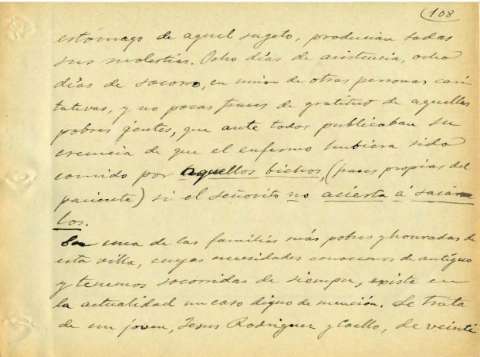 108
estomago de aquel sugeto, producian todas
sus molestias. Ocho días de asistencia, ocho
días de socorro, en union de otras personas cari
tativas, y no pocas frases de gratitud de aquellas
pobres gentes, que ante todos publicaban su
creencia de que el enfermo hubiera sido
comido por aquellos bichos, (frases propias del
paciente) si el señorito no acierta á sacár
los.
En una de las familias más pobres y honradas de
esta villa, cuyas necesidades conocemos de antiguo
y tenemos socorridas de siempre, existe en
la actualidad un caso digno de mención. Se trata
de un joven, Jesus Rodriguez y Coello, de veinte